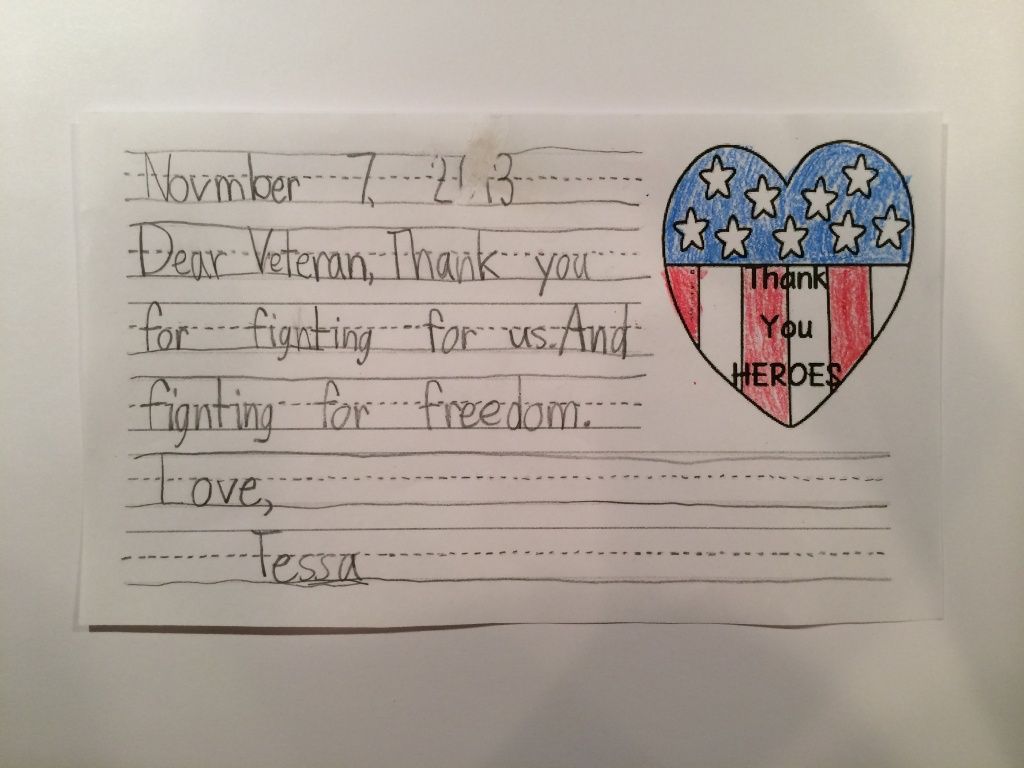 Novmber 7, 2013
Dear Veteran, Thank you
for fignting for us. And
fignting for freedom.
Love,
Tessa
Thank
You
HEROES